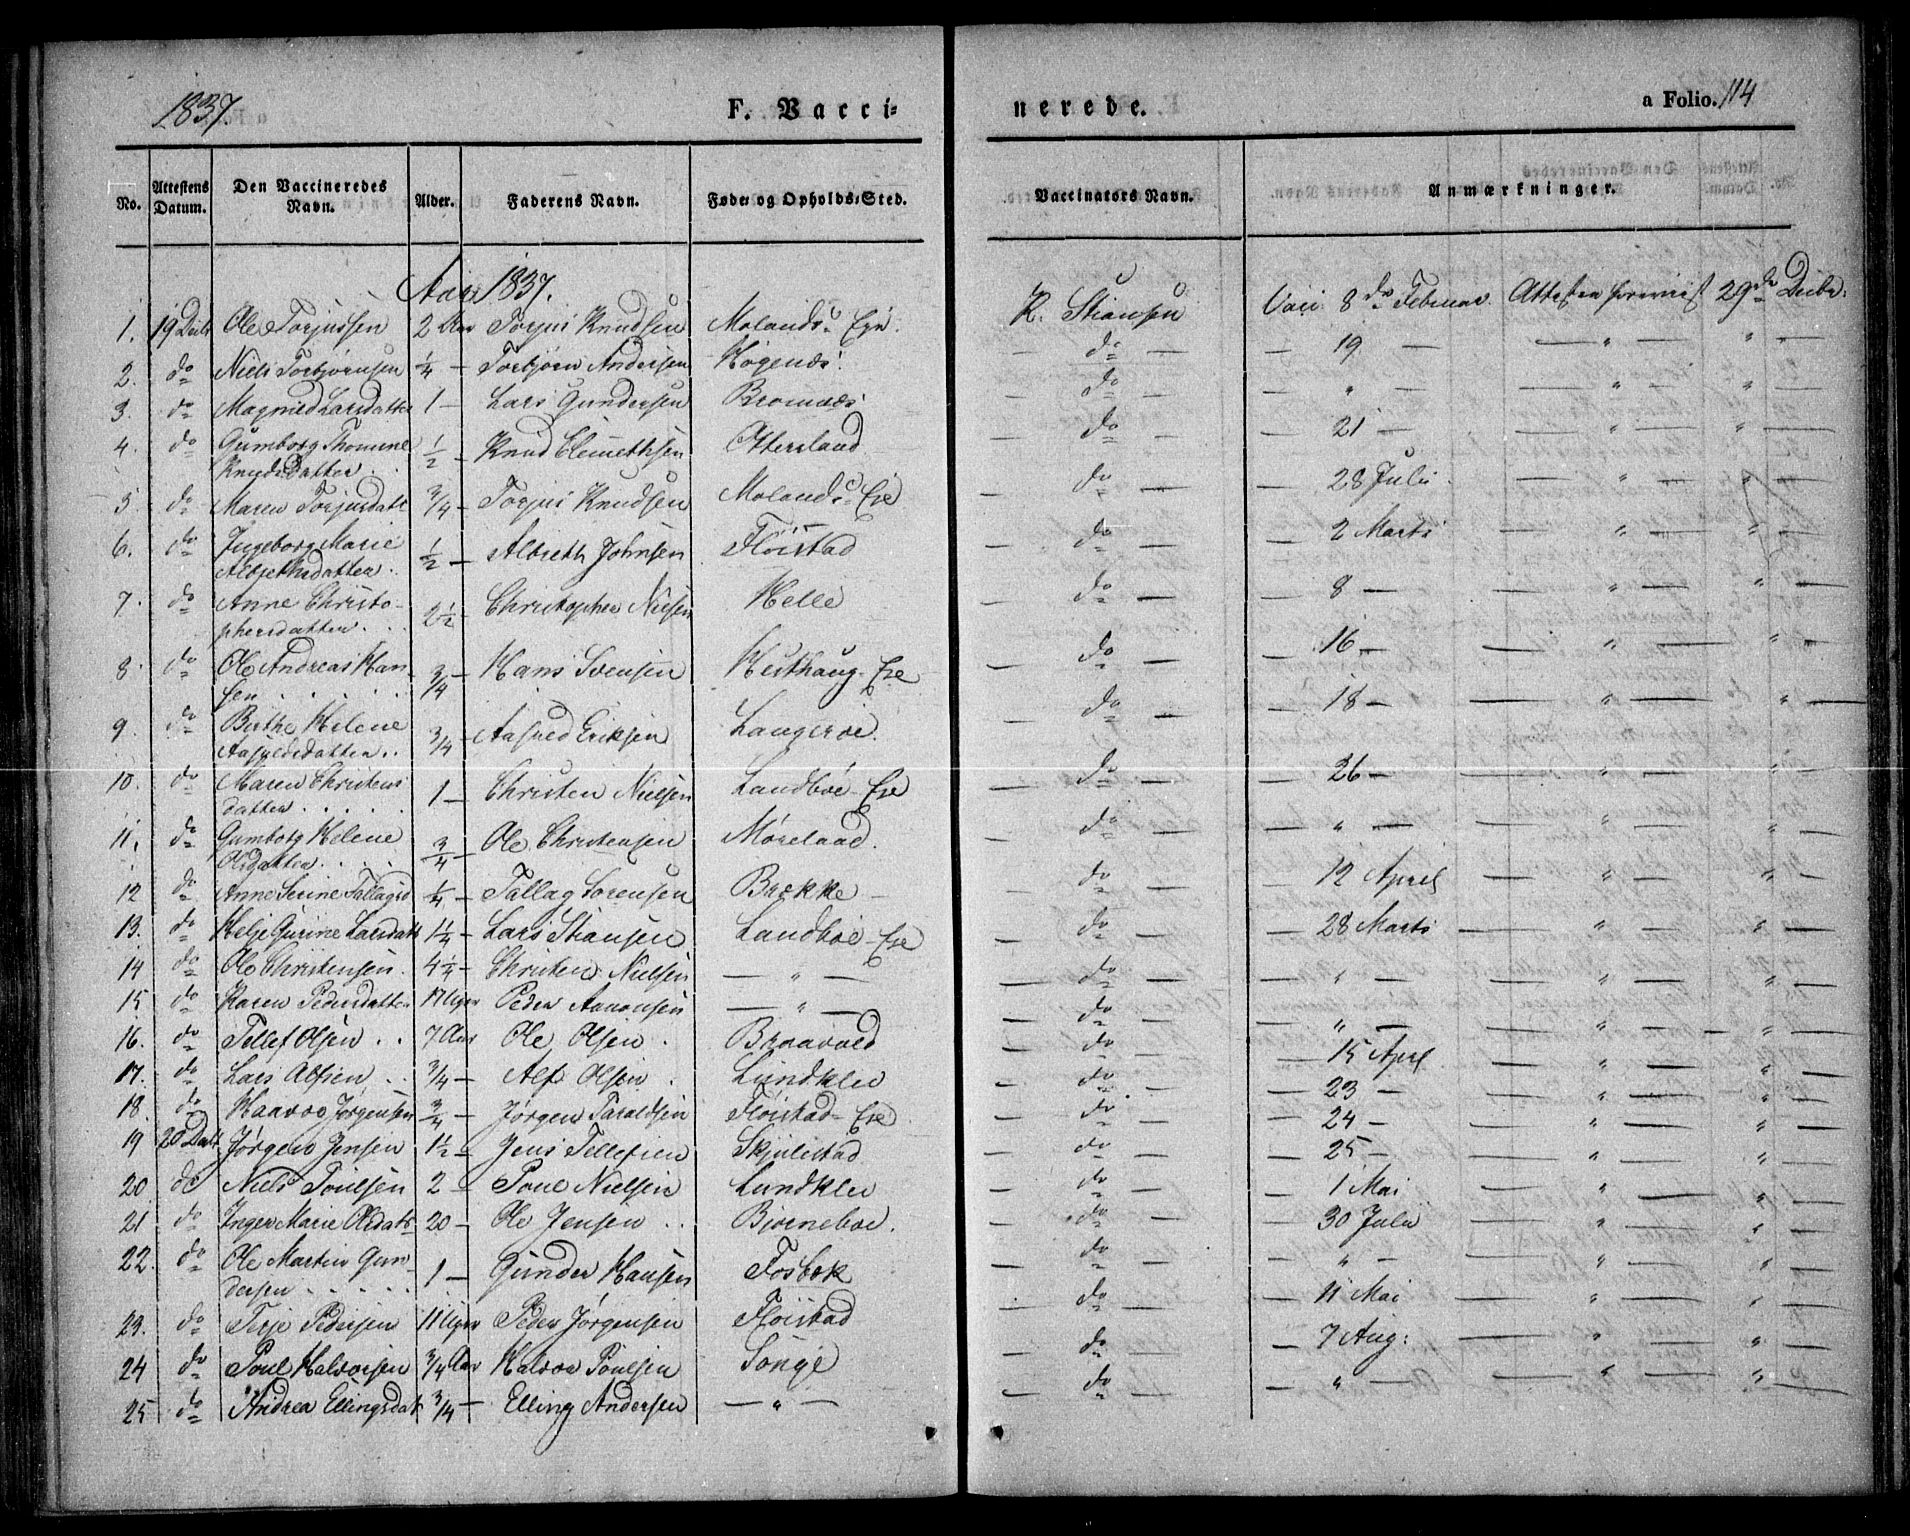 1837.
F. Vacci-
nerede.
a Folio. 114
No. | Attestens Datum. | Den Vaccineredes Navn. | Alder. | Faderens Navn. | Føde- og Opholds-Sted. | Vaccinators Navn. | Anmærkninger.
Aar 1837.
1. | 19 Decbr | Ole Torjussen | 2 Aar | Torjus Knudsen | Molands Eje. | K. Stiansen | Vacc. 8de Februar. Attesten forevist 29de Decbr:
2. | do | Niels Torbjørnsen | 1/4 — | Torbjørn Andersen | Høgenæs. | — do — | — 19 — — " — " —
3. | do | Magnild Larsdatter | 1 — | Lars Gundersen | Bromnæs | — do — | — " — — " — " —
4. | do | Gumborg Thomine
Knudsdatter . . | 1/2 — | Knud Clemethsen | Ottersland | — do — | — 21 — — " — " —
5 | do | Maren Torjusdatt | 3/4 — | Torjus Knudsen | Molands Eje | — do — | — 28 Juli — " — " —
6. | do | Ingeborg Marie
Albrethsdatter . | 1/2 — | Albreth Johnsen | Fløistad | — do — | — 2 Marts — " — " —
7. | do | Anne Christo-
phersdatter . . . | 2 1/2 — | Christopher Nielsen | Helle | — do — | — 8 — — " — " —
8. | do | Ole Andreas Han-
sen . . . . . | 3/4 — | Hans Svensen | Hesthaug-Eje | — do — | — 16 — — " — " —
9. | do | Berthe Helene
Aasuldsdatter . . | 3/4 — | Aasuld Eriksen | Langerøe. | — do — | — 18 — — " — " —
10. | do | Maren Christens
datter . . . . . | 1 — | Christen Nielsen | Landbøe-Eje | — do — | — 26 — — " — " —
11. | do | Gumborg Helene
Olsdatter . . . . | 3/4 — | Ole Christensen | Møreland. | — do — | — " — — " — " —
12 | do | Anne Serine Tallagsd | 1/4 — | Tallag Sørensen | Brække — | — do — | — 12 April — " — " —
13. | do | Helje Gurine Larsdatt | 1 1/4 — | Lars Stiansen | Landbøe-Eje | — do — | — 28 Marts — " — " —
14 | do | Ole Christensen. | 4 1/4 — | Christen Nielsen | — " — | — do — | — " — — " — " —
15 | do | Karen Pedersdatter | 17 Uger | Peder Aanonsen | — " — | — do — | — " — — " — " —
16. | do | Tellef Olsen . . | 7 Aar | Ole Olsen . | Braavold | — do — | — 15 April — " — " —
17. | do | Lars Alfsen . . | 3/4 — | Alf Olsen . | Lundklev | — do — | — 23 — — " — " —
18. | do | Haavor Jørgensen | 3/4 — | Jørgen Taraldsen | Fløistad-Eje | — do — | — 24 — — " — " —
19 | 20 Decbr | Jørgen Jensen | 1 1/2 — | Jens Tellefsen | Skjulestad | — do — | — 25 — — " — " —
20 | do | Niels Poulsen | 2 — | Poul Nielsen | Lundklev | — do — | — 1 Mai — " — " —
21 | do | Inger Marie Olsdatt | 20 — | Ole Jensen . . | Bjørneboe. | — do — | — 30 Julii — " — " —
22. | do | Ole Martin Gun-
dersen . . . . . | 1 — | Gunder Hansen | Fosbæk | — do — | — " — — " — " —
23. | do | Terje Pedersen | 11 Uger | Peder Jørgensen | Fløistad | — do — | — 11 Mai — " — " —
24 | do | Poul Halvorsen | 3/4 Aar | Halvor Poulsen | Songe | — do — | — 7 Aug: — " — " —
25 | do | Andrea Ellingsdat | 3/4 — | Elling Andersen | — " — | — do — | — " — — " — " —